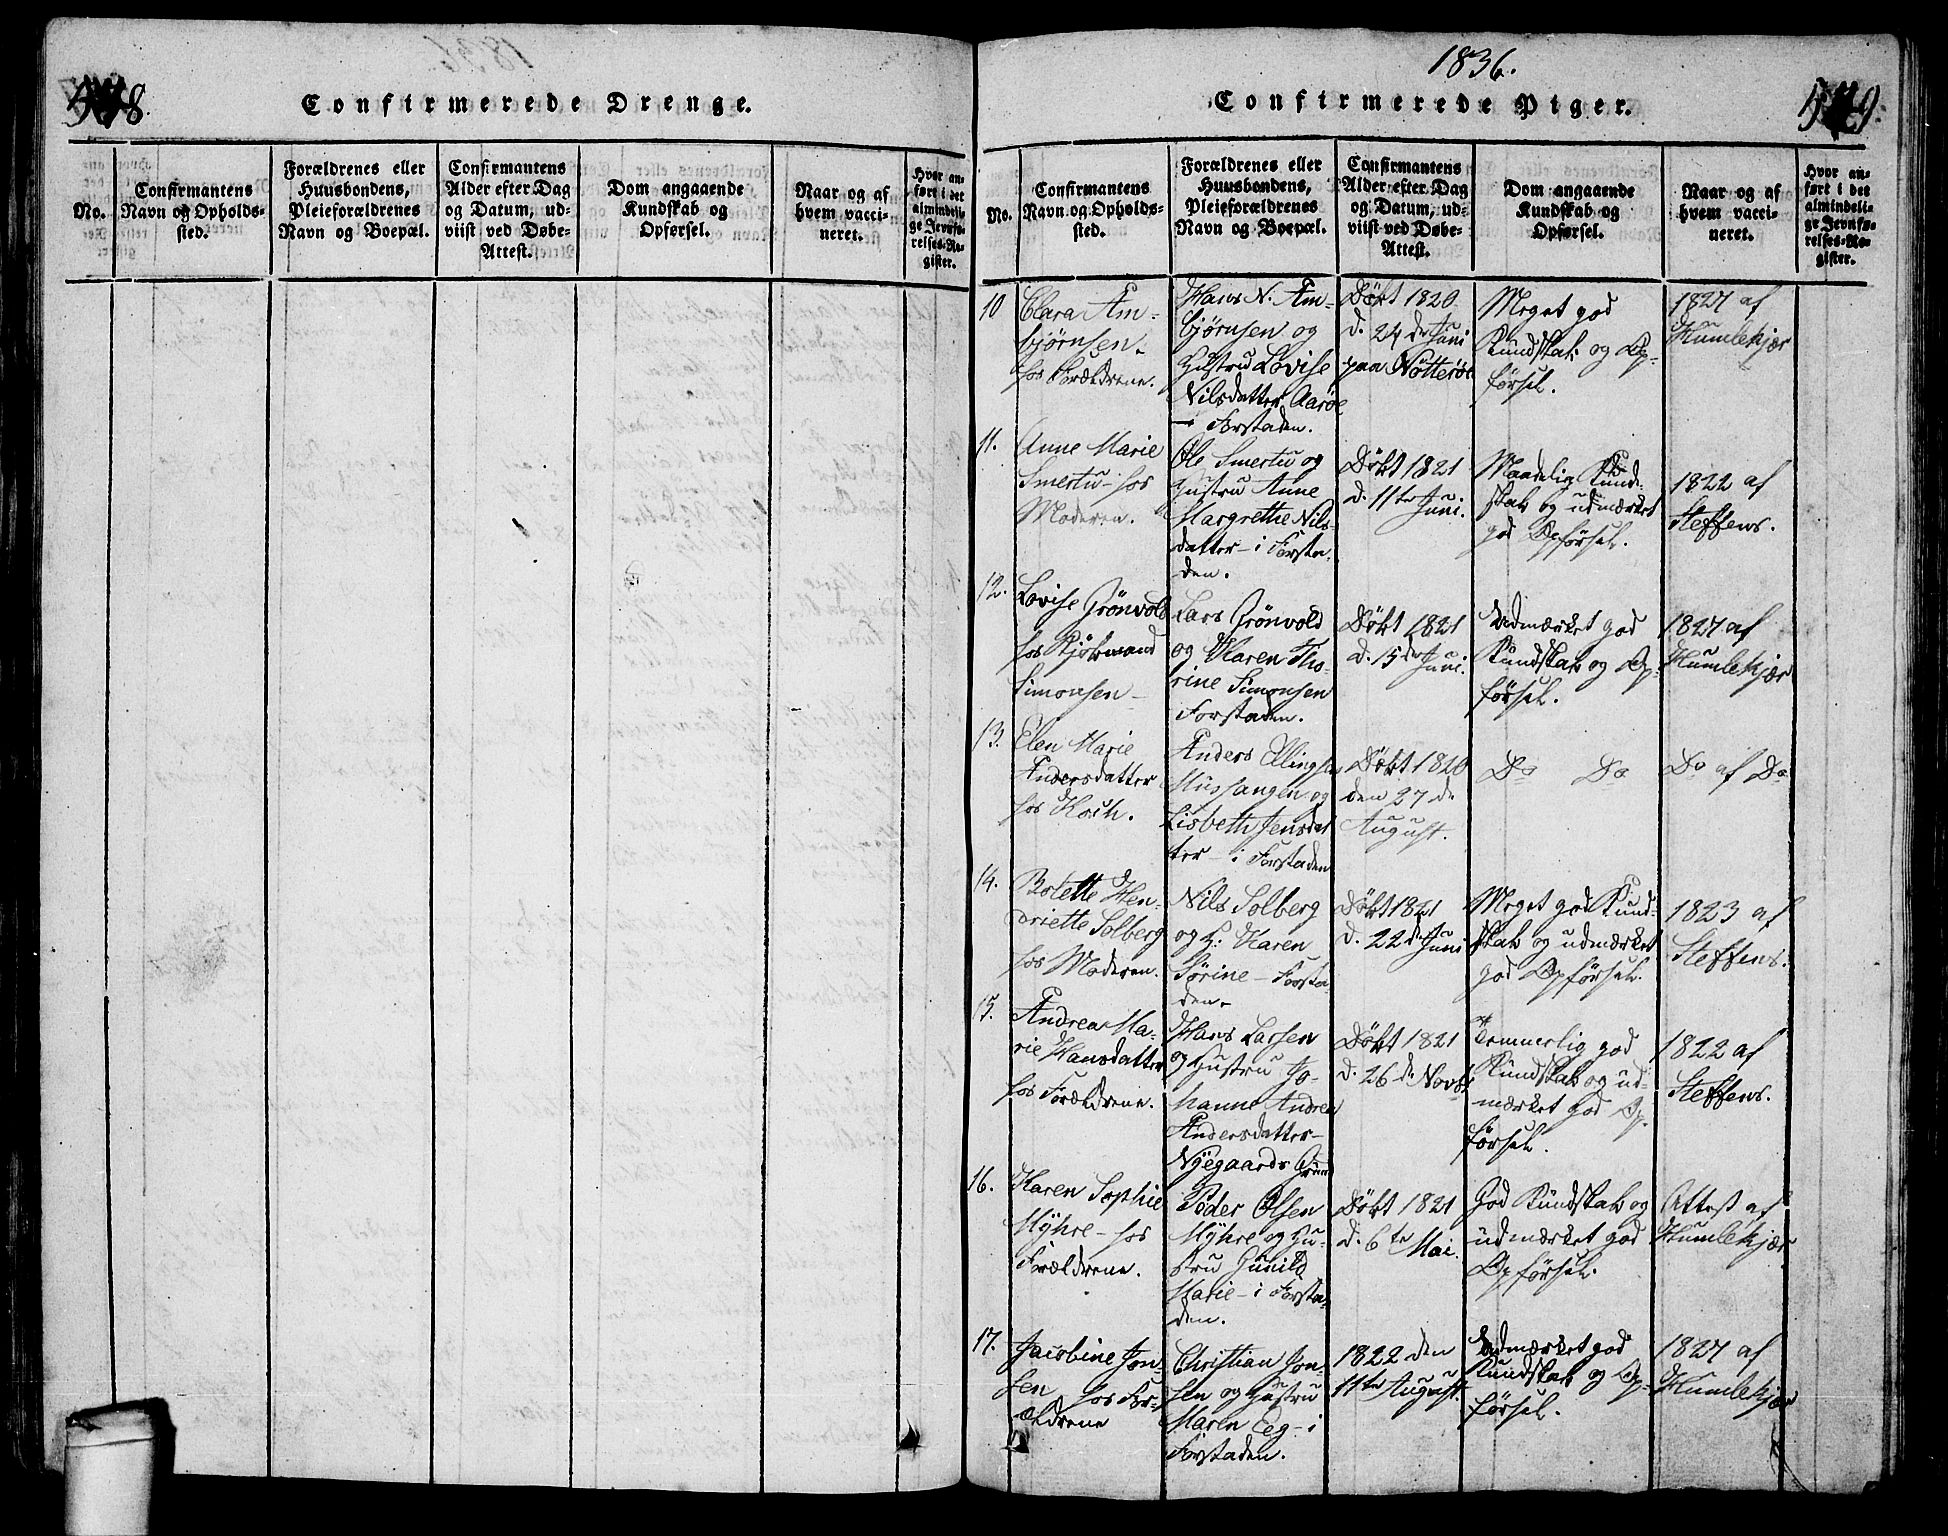 8.
Confirmerede Drenge.
No.
Confirmantens
Navn og Opholds-
sted.
Forældrenes eller
Huusbondens,
Pleieforældrenes
Navn og Boepæl.
Confirmantens
Alder efter Dag
og Datum, ud-
viist ved Døbe-
Attest.
Dom angaaende
Kundskab og
Opførsel.
Naar og af
hvem vacci-
neret.
Hvor an-
ført i det
almindeli-
ge Jevnfø-
relses-Re-
gister.
1836.
Confirmerede Piger.
9.
No.
Confirmantens
Navn og Opholds-
sted.
Forældrenes eller
Huusbondens,
Pleieforældrenes
Navn og Boepæl.
Confirmantens
Alder efter Dag
og Datum, ud-
viist ved Døbe-
Attest.
Dom angaaende
Kundskab og
Opførsel.
Naar og af
hvem vacci-
neret.
Hvor an-
ført i det
almindeli-
ge Jevnfø-
relses-Re-
gister.
10
Clara Am-
björnsen
hos Forældrene.
Hans N. Am-
björnsen og
Hustru Lovise
Nilsdatter Aarøe
i Forstaden.
Døbt 1820
d. 24de Juni
paa Nötteröe
Meget god
Kundskab og Op-
førsel.
1827 af
Humlekjær
11.
Anne Marie
Smertu hos
Moderen.
Ole Smertu og
Hustru Anne
Margrethe Nils-
datter i Forsta-
den.
Døbt 1821
d. 11te Juni.
Maadelig Kund-
skab og udmærket
god Opførsel.
1822 af
Steffens.
12.
Lovise Grönvold
hos
Simonsen
Lars Grönvold
og Karen Tho-
rine Simonsen
Forstaden.
Døbt 1821
d. 15de Juni.
Udmærket god
Kundskab og Op-
førsel.
1827 af
Humlekjær
13.
Elen Marie
Andersdatter
hos Koch.
Anders Ellingsen
Mussangen og
Lisbeth Jensdat
ter i Forstaden
Døbt 1820
den 27de
August.
Do Do
Do af Do
14.
Bolette Hen-
driette Solberg
hos Moderen.
Nils Solberg
og H: Karen
Sörine Forsta-
den.
Døbt 1821
d. 22de Juni
Meget god Kund-
skab og udmærket
god Opførsel.
1823 af
Steffens.
15.
Andrea Ma-
rie Hansdatter
hos Forældrene.
Hans Larsen
og Hustru Jo-
hanne Andrea
Andersdatter
Nyegaards Grund
Døbt 1821
d. 26de Novbr
Temmerlig god
Kundskab og ud-
mærket god Op-
førsel.
1822 af
Steffens.
16.
Karen Sophie
Mÿhre hos
Forældrene.
Peder Olsen
Mÿhre og Hu-
stru Gunild
Marie i Forsta-
den.
Døbt 1821
d. 6te Mai.
God Kundskab og
udmærket god
Opførsel.
Attest af
Humlekjær
17.
Jacobine Jon-
sen hos For-
ældrene
Christian Jon-
sen og Hustru
Maren Eeg i
Forstaden.
1822 den
11te August.
Udmærket god
Kundskab og Op-
førsel.
1827 af
Humlekjær